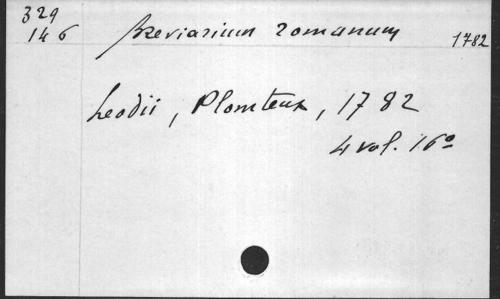 329
146
Breviarium romanum
1782
Leodii, Plomteux, 1782
4 vol. 16°